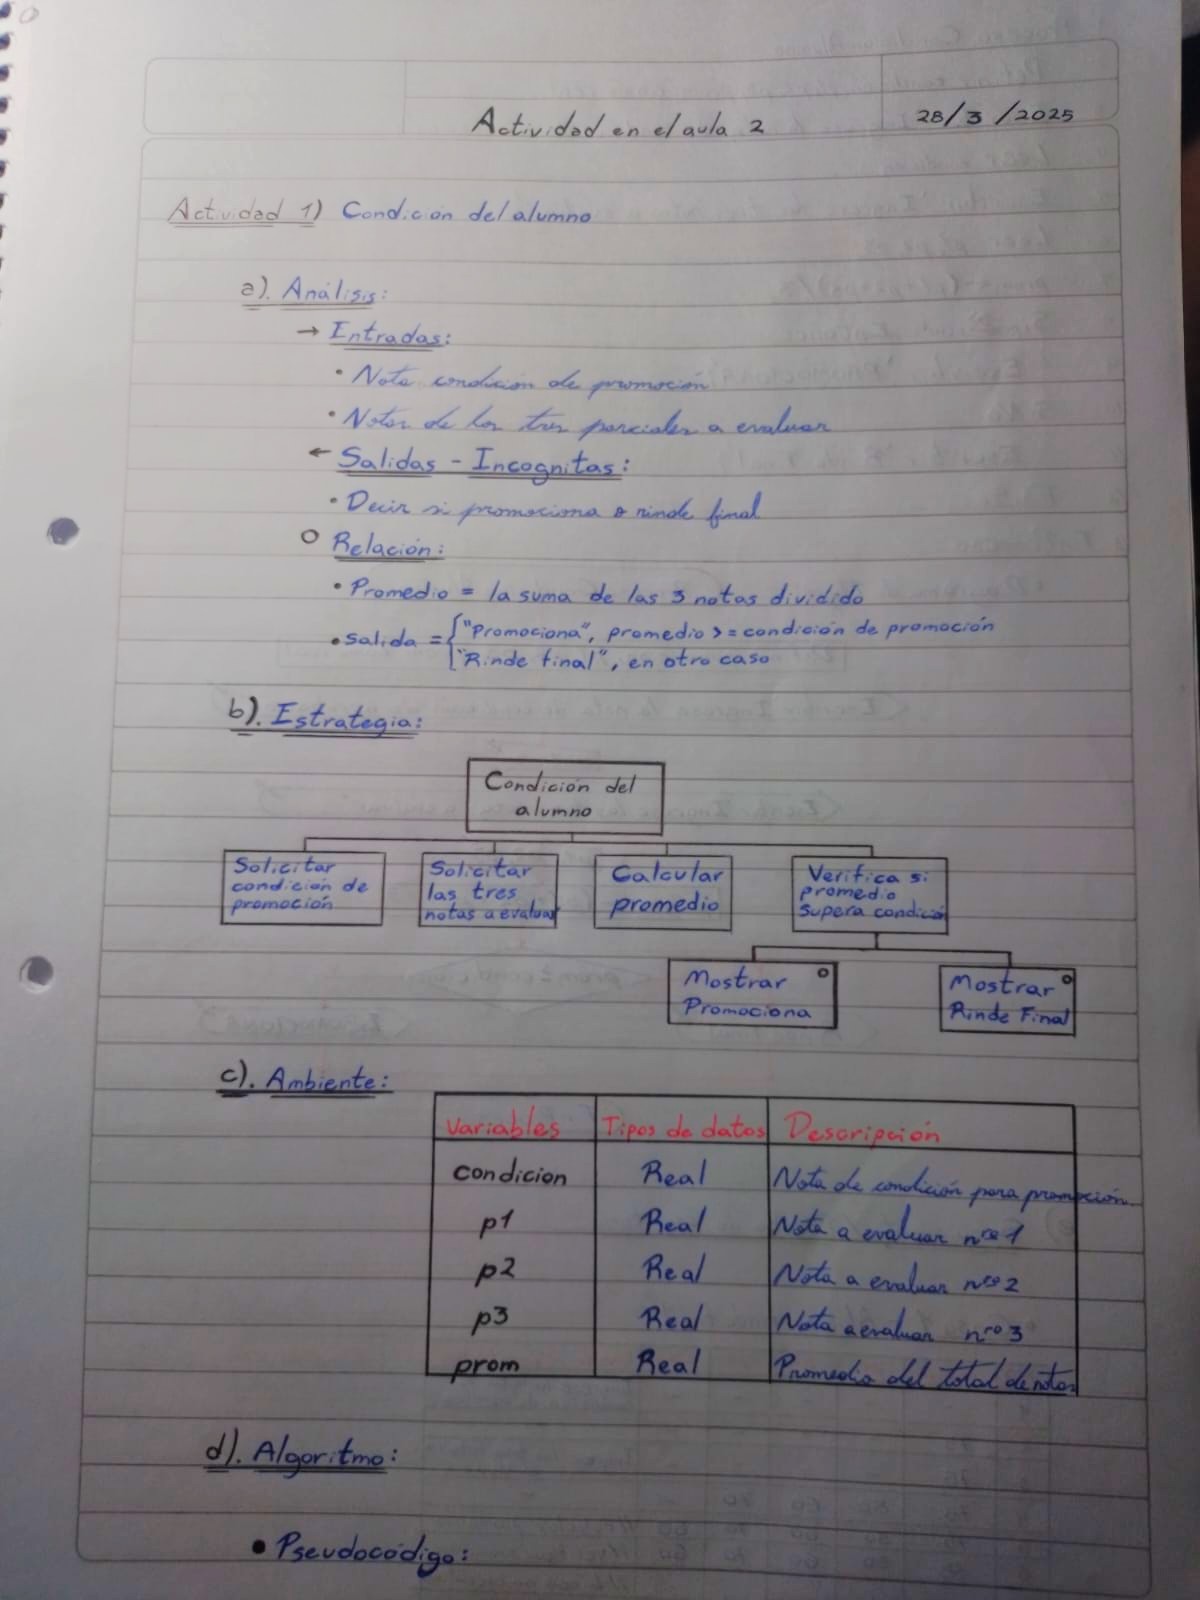 Actividad en el aula 2
28/3/2025
Actividad 1) Condición del alumno
a). Análisis:
→ Entradas:
• Nota condición de promoción
• Notas de los tres parciales a evaluar
← Salidas - Incognitas:
• Decir si promociona o rinde final
O Relación:
• Promedio = la suma de las 3 notas dividido
• Salida = { "Promociona", promedio >= condición de promoción
"Rinde final", en otro caso
b). Estrategia:
Condición del
alumno
Solicitar
condición de
promoción
Solicitar
las tres
notas a evaluar
Calcular
promedio
Verifica si
promedio
supera condición
Mostrar
Promociona
Mostrar
Rinde Final
c). Ambiente:
Variables Tipos de datos Descripción
condicion Real Nota de condición para promoción
p1 Real Nota a evaluar nro 1
p2 Real Nota a evaluar nro 2
p3 Real Nota a evaluar nro 3
prom Real Promedio del total de notas
d). Algoritmo:
• Pseudocódigo: